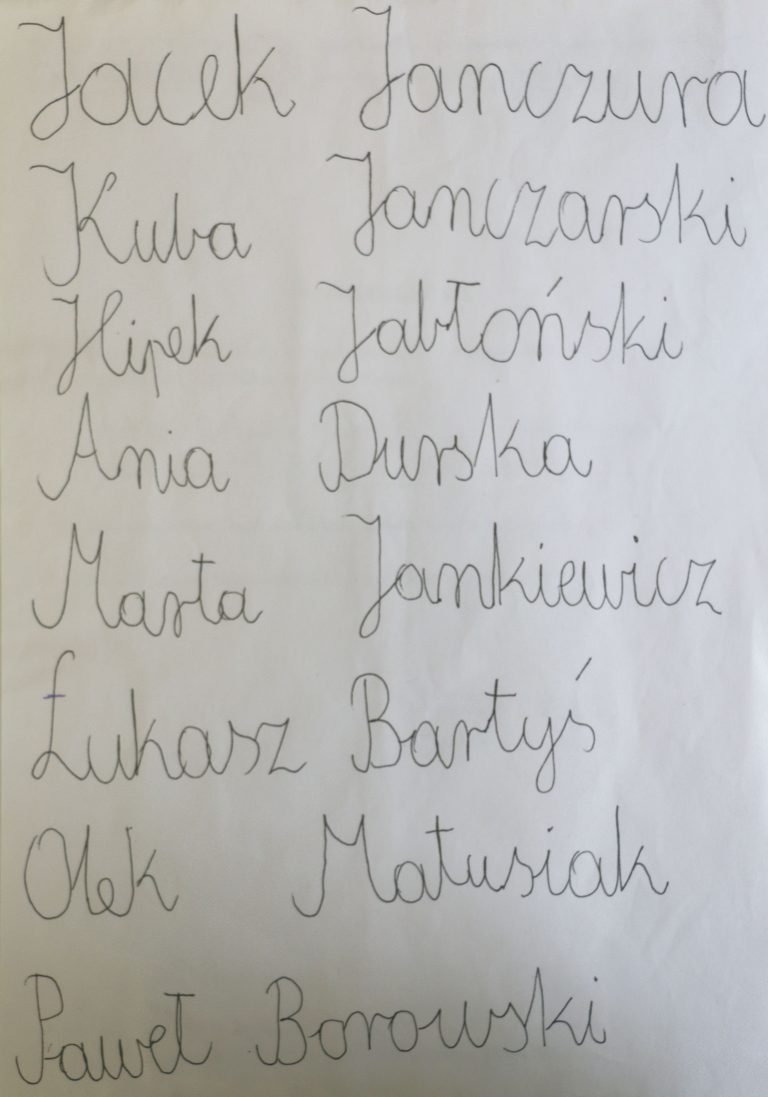 Jacek Janczura
Kuba Janczarski
Hipek Jabłoński
Ania Durska
Marta Jankiewicz
Łukasz Bartyś
Olek Matusiak
Paweł Borowski